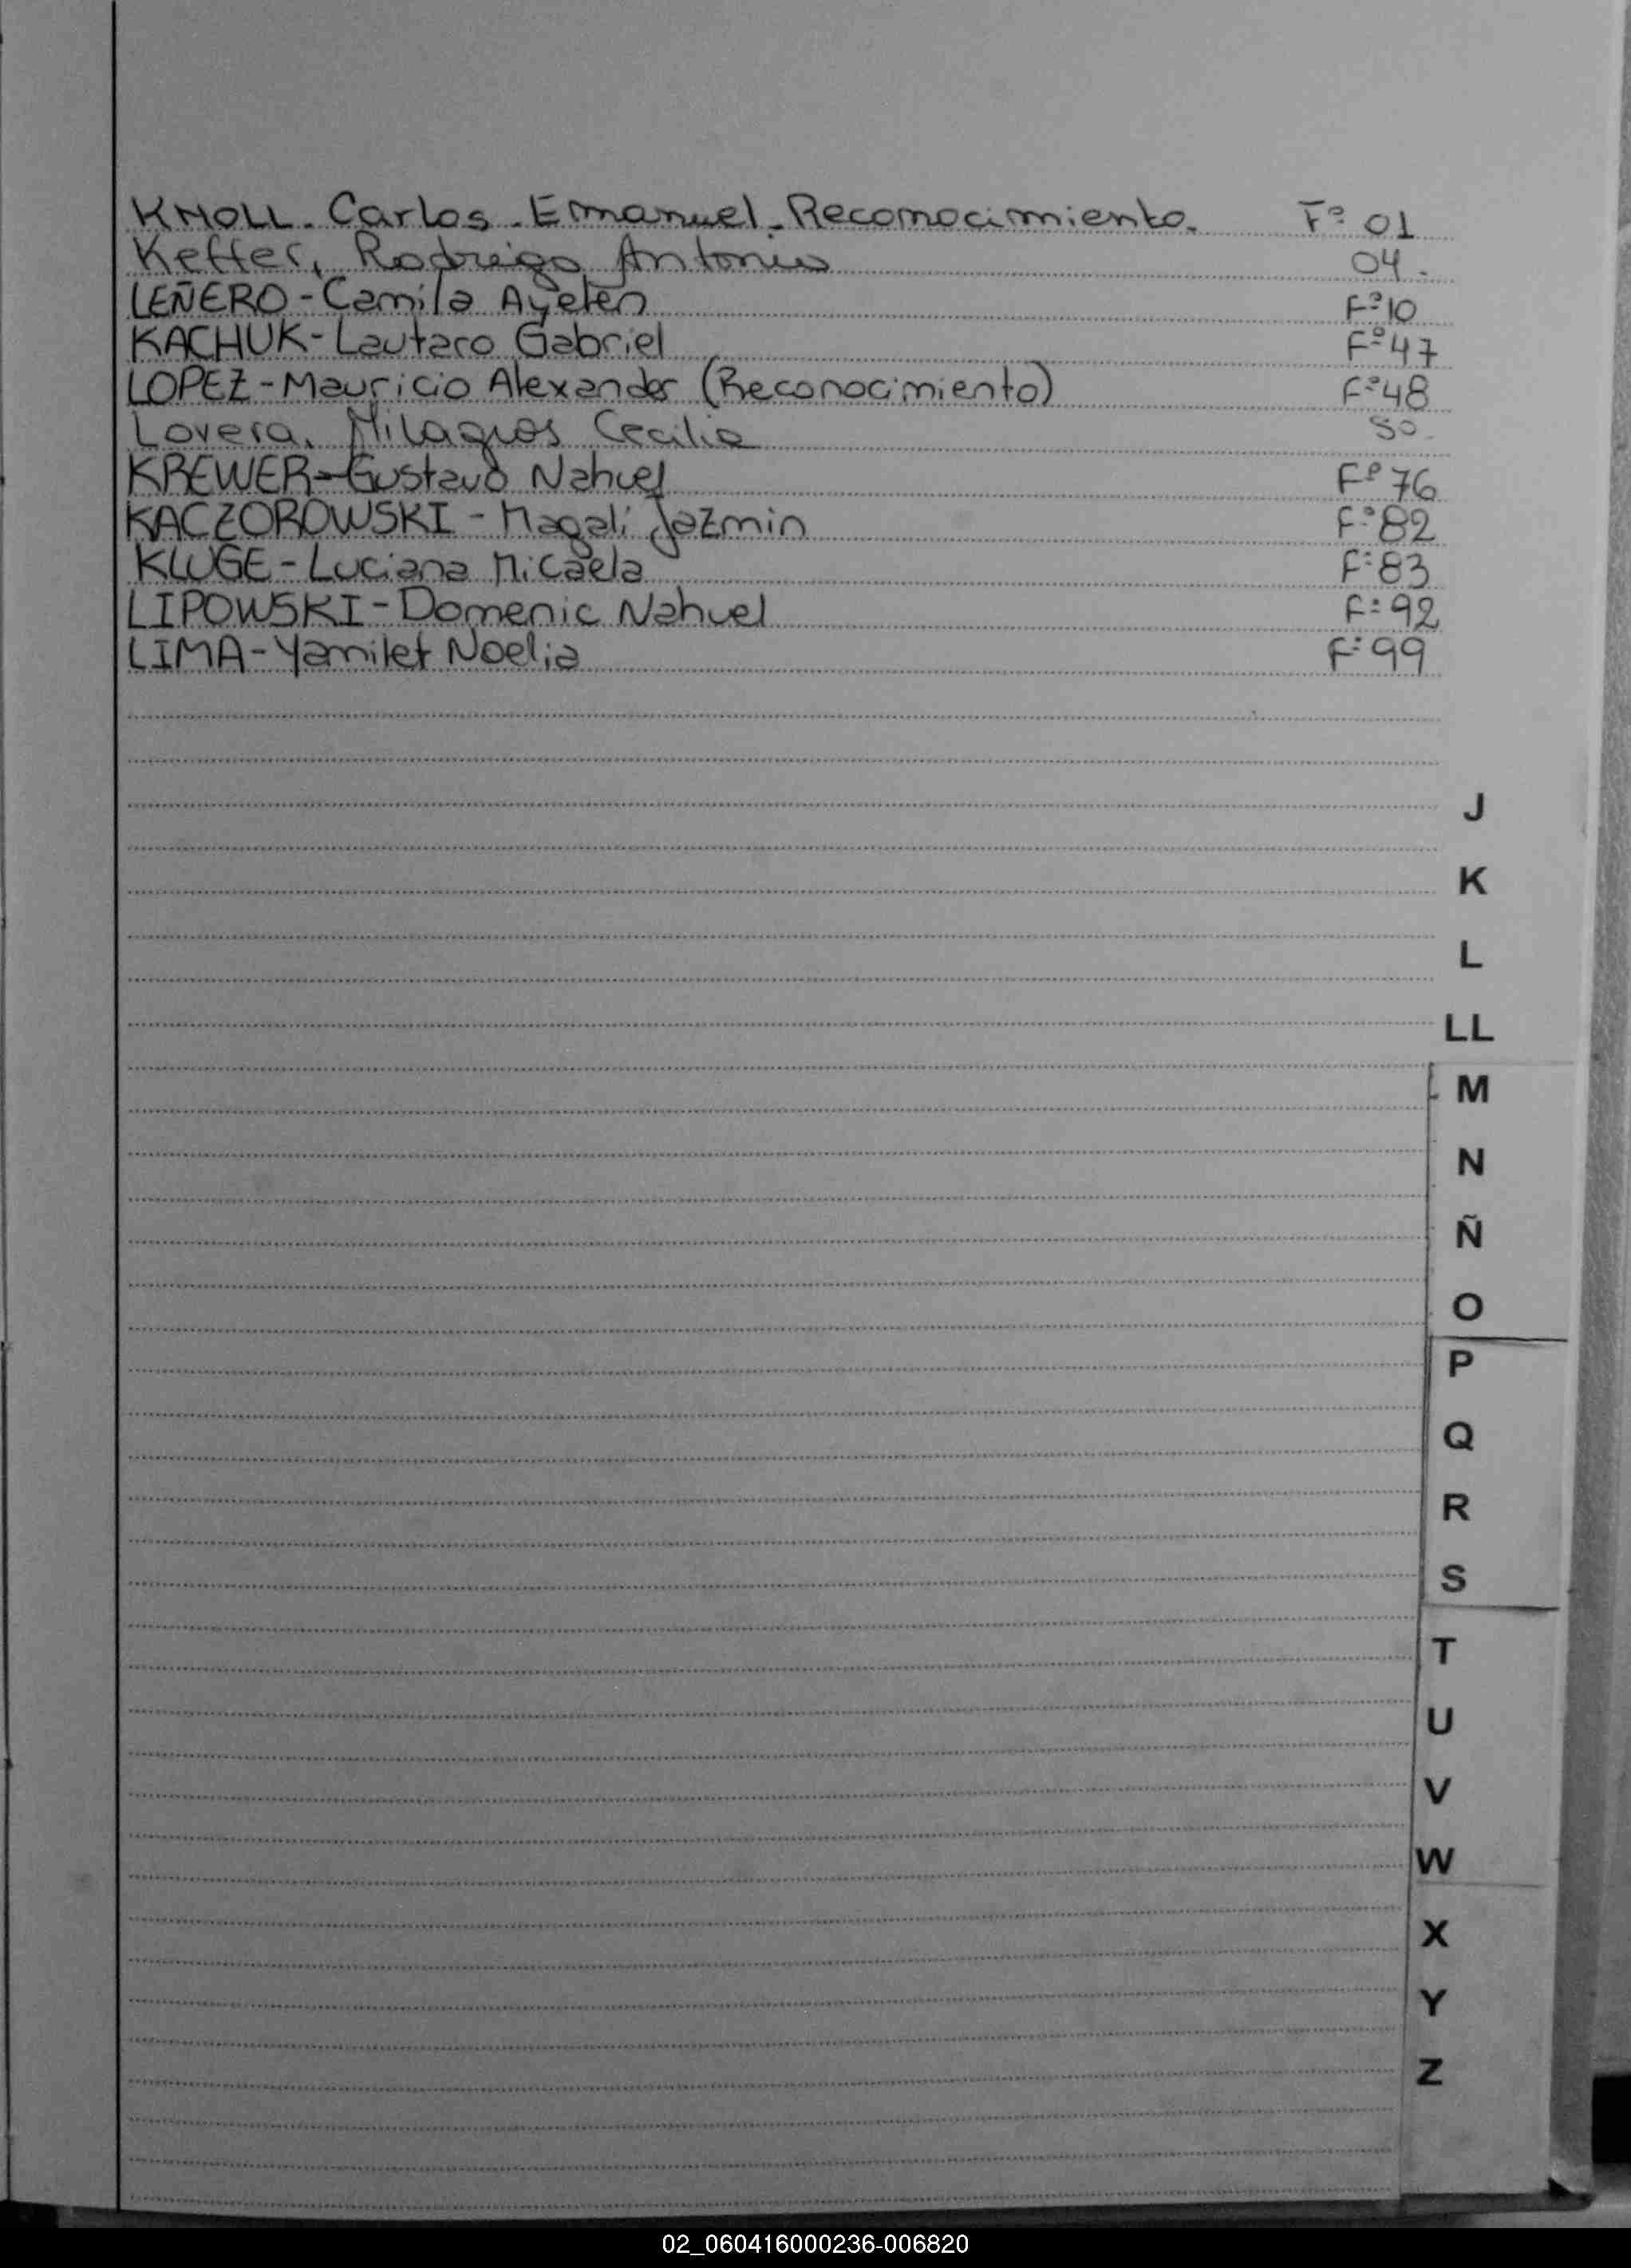 KNOLL. Carlos. Emanuel. Reconocimiento. Fº 01
Keffer, Rodrigo Antonio 04.
LEÑERO - Camila Ayelén Fº 10
KACHUK - Lautaro Gabriel Fº 47
LOPEZ - Mauricio Alexander (Reconocimiento) Fº 48
Lovera, Milagros Cecilia 50.
KREWER - Gustavo Nahuel Fº 76
KACZOROWSKI - Magalí Jazmin Fº 82
KLUGE - Luciana Micaela Fº 83
LIPOWSKI - Domenic Nahuel Fº 92
LIMA - Yamilet Noelia Fº 99
J
K
L
LL
M
N
Ñ
O
P
Q
R
S
T
U
V
W
X
Y
Z
02_060416000236-006820